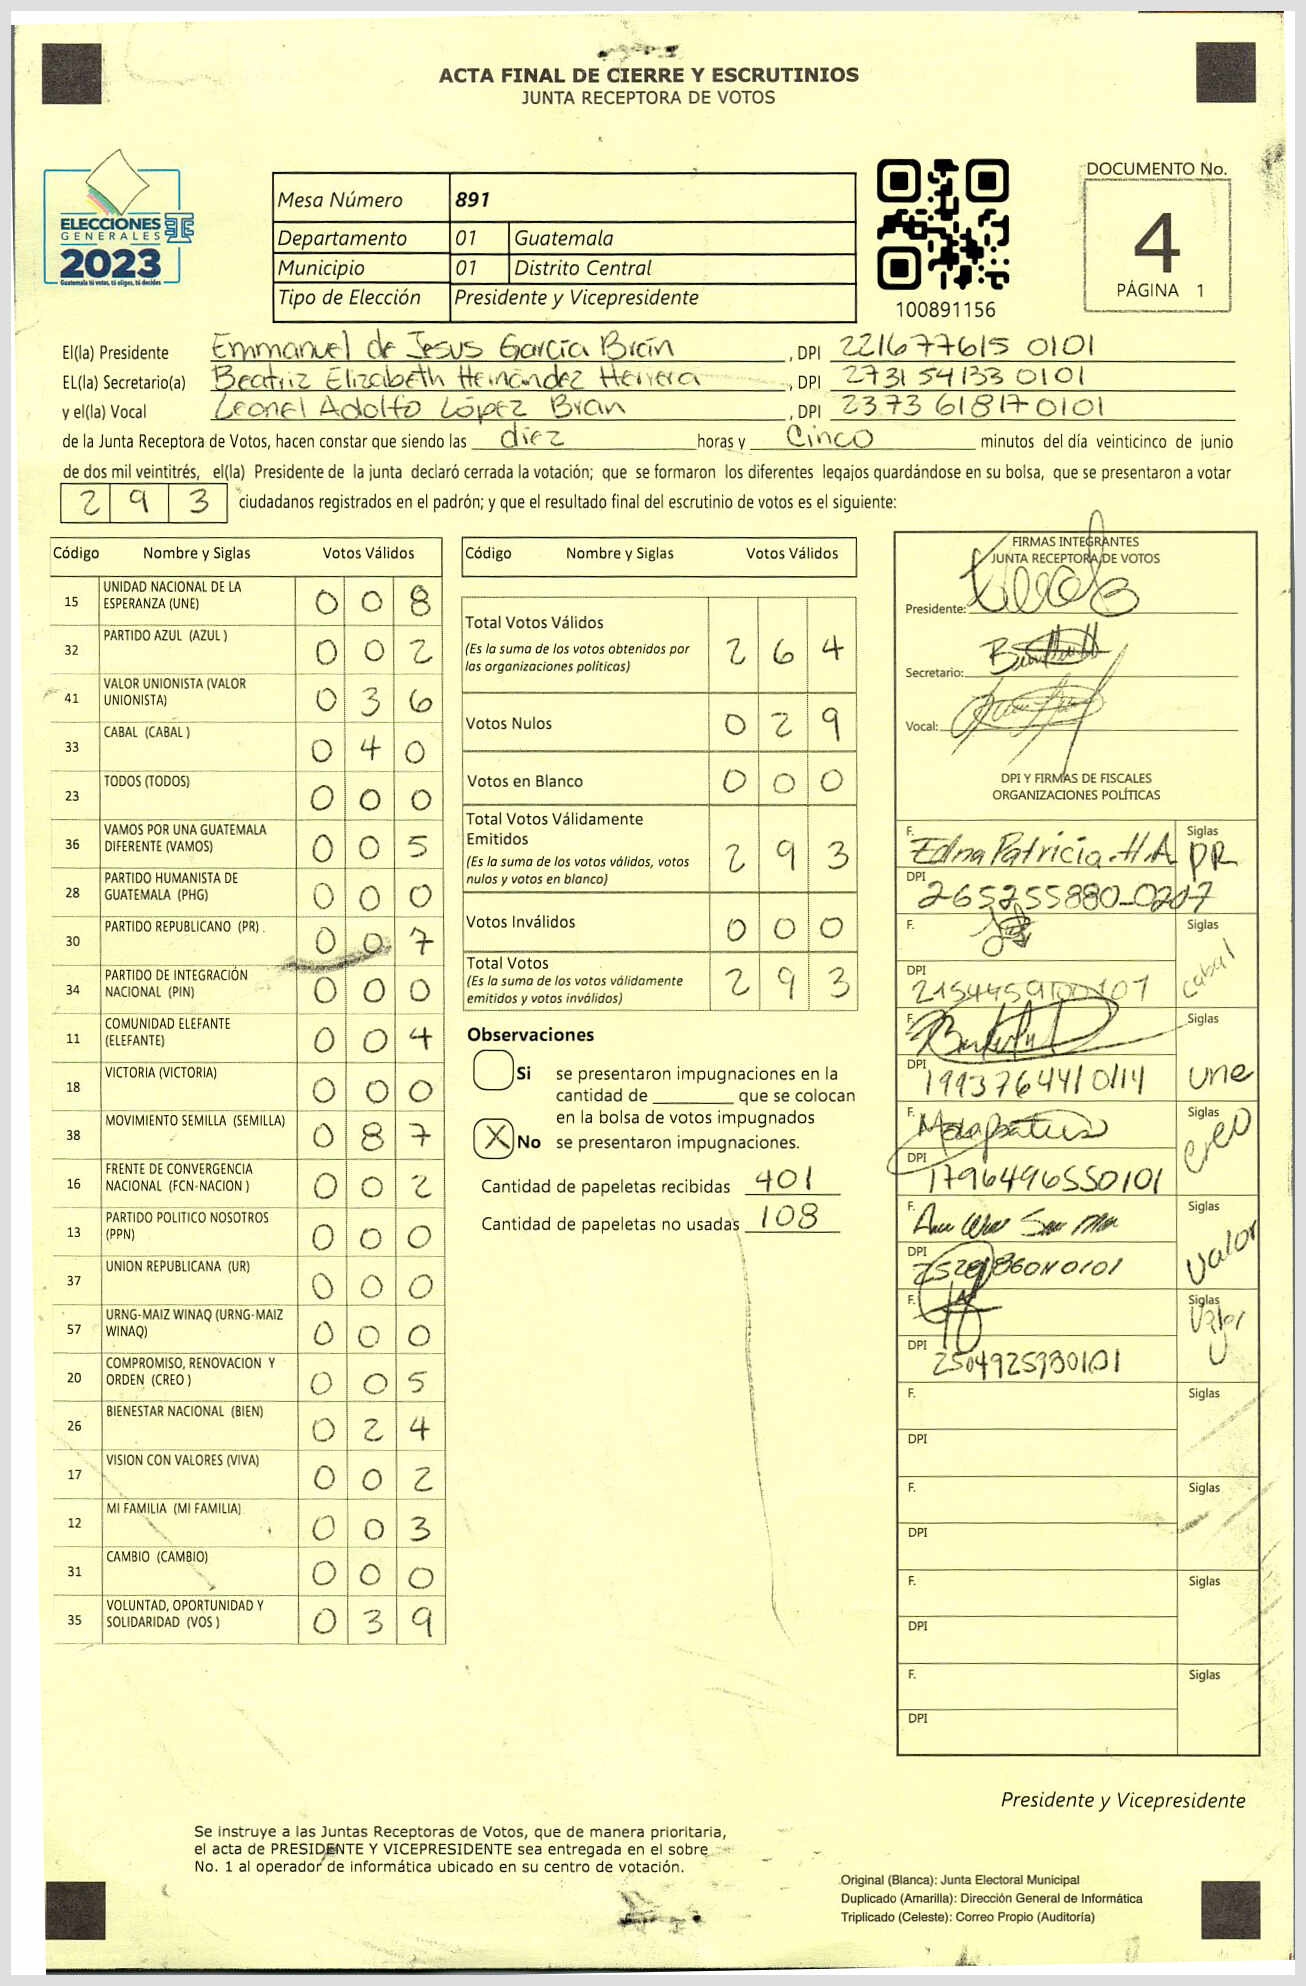 ACTA FINAL DE CIERRE Y ESCRUTINIOS
JUNTA RECEPTORA DE VOTOS
ELECCIONES
GENERALES
2023
Guatemala tú votas, tú eliges, tú decides
Mesa Número 891
Departamento 01 Guatemala
Municipio 01 Distrito Central
Tipo de Elección Presidente y Vicepresidente
100891156
DOCUMENTO No.
4
PÁGINA 1
El(la) Presidente Emmanuel de Jesus García Brán , DPI 221677615 0101
EL(la) Secretario(a) Beatriz Elizabeth Hernández Herrera , DPI 2731 54133 0101
y el(la) Vocal Leonel Adolfo López Bran , DPI 2373 61817 0101
de la Junta Receptora de Votos, hacen constar que siendo las diez horas y Cinco minutos del día veinticinco de junio
de dos mil veintitrés, el(la) Presidente de la junta declaró cerrada la votación; que se formaron los diferentes legajos guardándose en su bolsa, que se presentaron a votar
2 9 3 ciudadanos registrados en el padrón; y que el resultado final del escrutinio de votos es el siguiente:
Código Nombre y Siglas Votos Válidos
15 UNIDAD NACIONAL DE LA
ESPERANZA (UNE) 0 0 8
32 PARTIDO AZUL (AZUL ) 0 0 2
41 VALOR UNIONISTA (VALOR
UNIONISTA) 0 3 6
33 CABAL (CABAL ) 0 4 0
23 TODOS (TODOS) 0 0 0
36 VAMOS POR UNA GUATEMALA
DIFERENTE (VAMOS) 0 0 5
28 PARTIDO HUMANISTA DE
GUATEMALA (PHG) 0 0 0
30 PARTIDO REPUBLICANO (PR) 0 0 7
34 PARTIDO DE INTEGRACIÓN
NACIONAL (PIN) 0 0 0
11 COMUNIDAD ELEFANTE
(ELEFANTE) 0 0 4
18 VICTORIA (VICTORIA) 0 0 0
38 MOVIMIENTO SEMILLA (SEMILLA) 0 8 7
16 FRENTE DE CONVERGENCIA
NACIONAL (FCN-NACION ) 0 0 2
13 PARTIDO POLITICO NOSOTROS
(PPN) 0 0 0
37 UNION REPUBLICANA (UR) 0 0 0
57 URNG-MAIZ WINAQ (URNG-MAIZ
WINAQ) 0 0 0
20 COMPROMISO, RENOVACION Y
ORDEN (CREO ) 0 0 5
26 BIENESTAR NACIONAL (BIEN) 0 2 4
17 VISION CON VALORES (VIVA) 0 0 2
12 MI FAMILIA (MI FAMILIA) 0 0 3
31 CAMBIO (CAMBIO) 0 0 0
35 VOLUNTAD, OPORTUNIDAD Y
SOLIDARIDAD (VOS ) 0 3 9
Código Nombre y Siglas Votos Válidos
Total Votos Válidos
(Es la suma de los votos obtenidos por
las organizaciones políticas) 2 6 4
Votos Nulos 0 2 9
Votos en Blanco 0 0 0
Total Votos Válidamente
Emitidos
(Es la suma de los votos válidos, votos
nulos y votos en blanco) 2 9 3
Votos Inválidos 0 0 0
Total Votos
(Es la suma de los votos válidamente
emitidos y votos inválidos) 2 9 3
Observaciones
Si se presentaron impugnaciones en la
cantidad de ________ que se colocan
en la bolsa de votos impugnados
X No se presentaron impugnaciones.
Cantidad de papeletas recibidas 401
Cantidad de papeletas no usadas 108
FIRMAS INTEGRANTES
JUNTA RECEPTORA DE VOTOS
Presidente:
Secretario:
Vocal:
DPI Y FIRMAS DE FISCALES
ORGANIZACIONES POLÍTICAS
F. Edna Patricia.H.A Siglas PR
DPI 265255880_0207
F. Siglas Cabal
DPI
F. Siglas une
DPI 1993764410114
F. Siglas creo
DPI 1796496550101
F. Siglas Valor
DPI
F. Siglas Valor
DPI
F. Siglas
DPI
F. Siglas
DPI
F. Siglas
DPI
F. Siglas
DPI
Presidente y Vicepresidente
Se instruye a las Juntas Receptoras de Votos, que de manera prioritaria,
el acta de PRESIDENTE Y VICEPRESIDENTE sea entregada en el sobre
No. 1 al operador de informática ubicado en su centro de votación.
Original (Blanca): Junta Electoral Municipal
Duplicado (Amarilla): Dirección General de Informática
Triplicado (Celeste): Correo Propio (Auditoría)